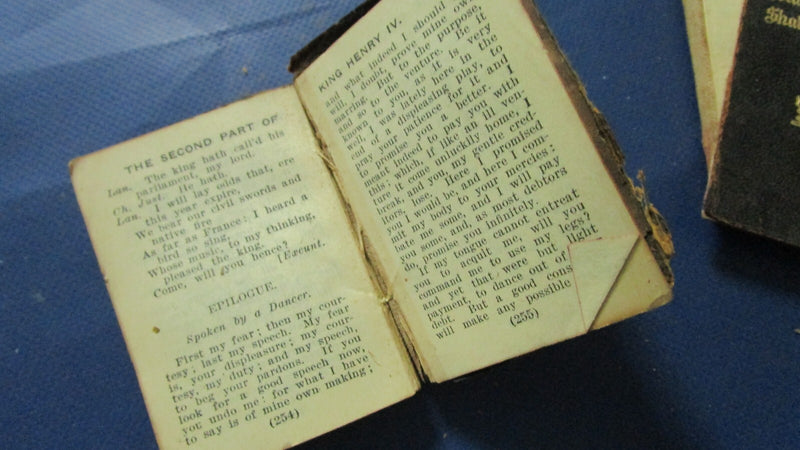 THE SECOND PART OF
Lan. The king hath call'd his
parliament, my lord.
Ch. Just. He hath.
Lan. I will lay odds that, ere
this year expire,
We bear our civil swords and
native fire
As far as France: I heard a
bird so sing,
Whose music, to my thinking,
pleased the king.
Come, will you hence?
[Exeunt.
EPILOGUE.
Spoken by a Dancer.
First my fear; then my cour-
tesy; last my speech. My fear
is, your displeasure; my cour-
tesy, my duty; and my speech,
to beg your pardons. If you
look for a good speech now,
you undo me: for what I have
to say is of mine own making;
(254)
KING HENRY IV.
and what indeed I should
will, I doubt, prove mine own
marring. But to the purpose,
and so to the venture. Be it
known to you, as it is very
well, I was lately here in the
end of a displeasing play, to
pray your patience for it and
to promise you a better. I
meant indeed to pay you with
this: which, if like an ill ven-
ture it come unluckily home, I
break, and you, my gentle cred-
itors, lose. Here I promised
you I would be, and here I com-
mit my body to your mercies:
bate me some, and I will pay
you some, and, as most debtors
do, promise you infinitely.
If my tongue cannot entreat
you to acquit me, will you
command me to use my legs?
and yet that were but light
payment, to dance out of
debt. But a good cons
will make any possible
(255)